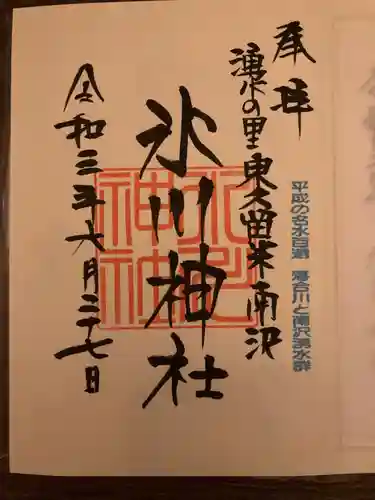 奉拝
平成の名水百選 落合川と南沢湧水群
湧水の里 東久留米南沢
氷川神社
氷川神社
令和三年六月二十七日